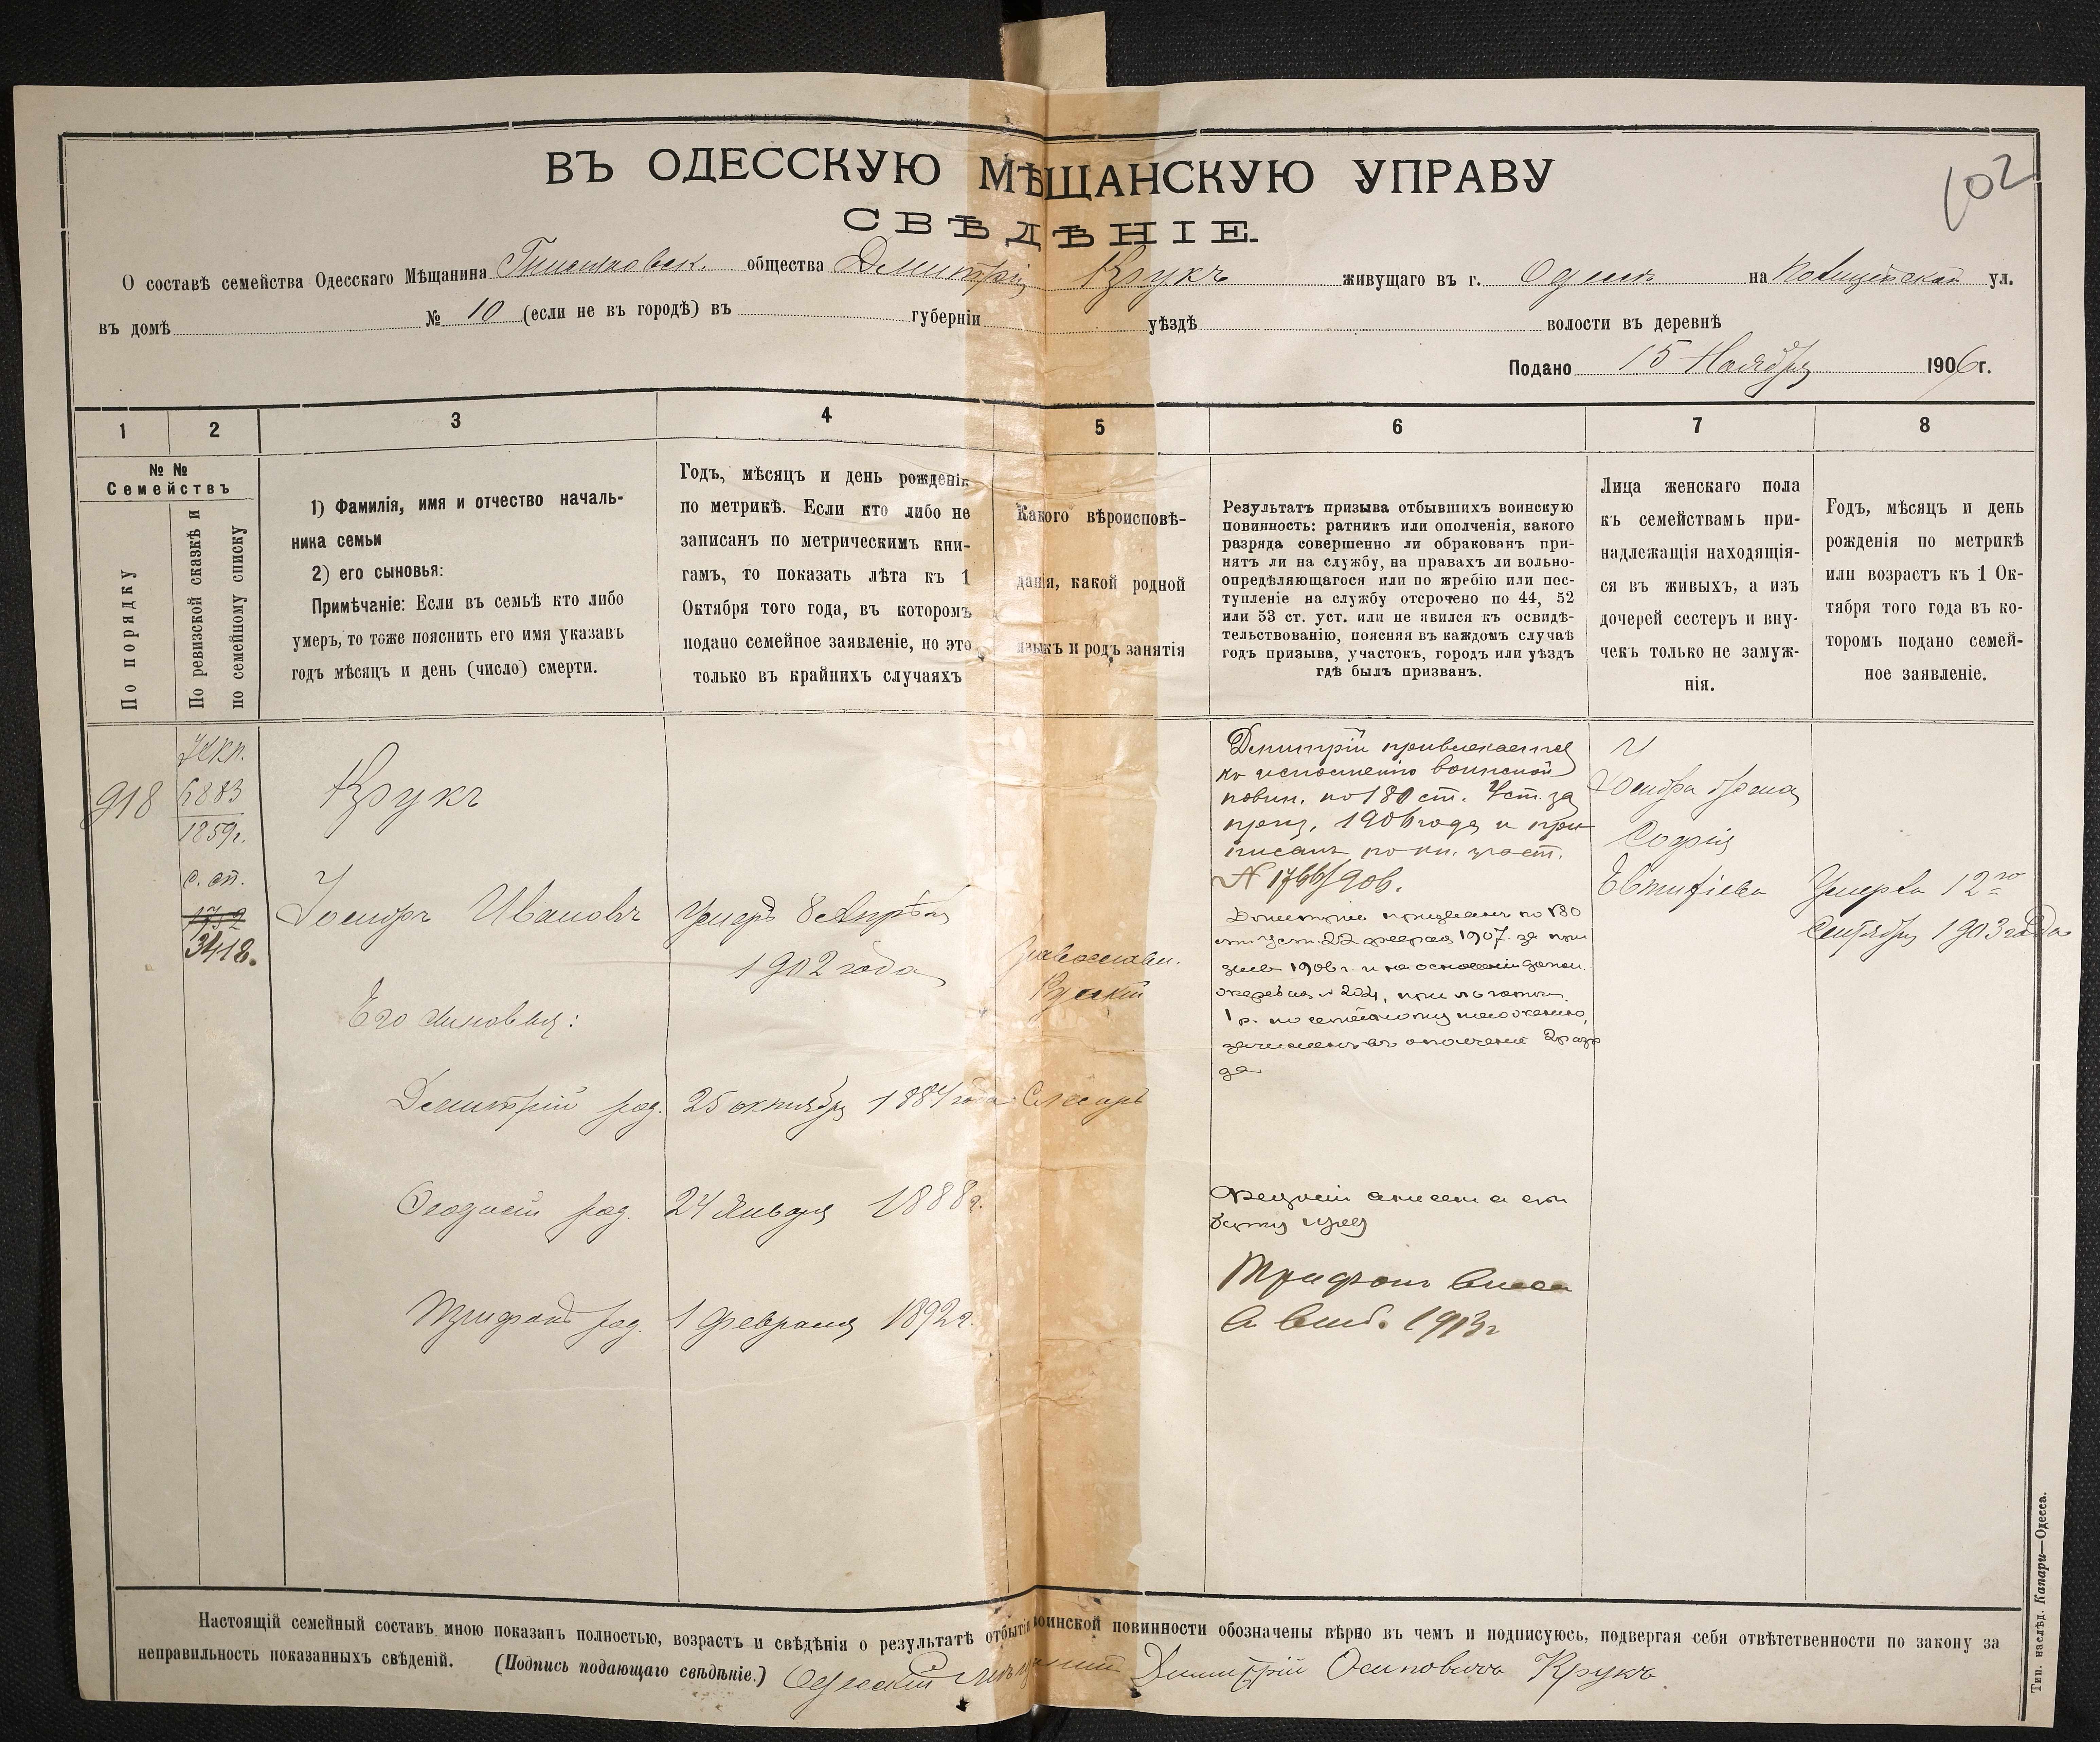 102
ВЪ ОДЕССКУЮ МѢЩАНСКУЮ УПРАВУ
СВѢДѢНІЕ.
О составѣ семейства Одесскаго Мѣщанина общества Дмитрій Крукъ живущаго въ г. Одессѣ на Полицейской ул.
въ домѣ № 10 (если не въ городѣ) въ губерніи уѣздѣ волости въ деревнѣ
Подано 15 Ноября 1906 г.
1 2 3 4 5 6 7 8
№ №
Семействъ
По порядку
По ревизской сказкѣ и
по семейному списку
1) Фамилія, имя и отчество началь-
ника семьи
2) его сыновья:
Примѣчаніе: Если въ семьѣ кто либо
умеръ, то тоже пояснить его имя указавъ
годъ мѣсяцъ и день (число) смерти.
Годъ, мѣсяцъ и день рожденія
по метрикѣ. Если кто либо не
записанъ по метрическимъ кни-
гамъ, то показать лѣта къ 1
Октября того года, въ которомъ
подано семейное заявленіе, но это
только въ крайнихъ случаяхъ
Какого вѣроисповѣ-
данія, какой родной
языкъ и родъ занятія
Результатъ призыва отбывшихъ воинскую
повинность: ратникъ или ополченія, какого
разряда совершенно ли обракованъ при-
нятъ ли на службу, на правахъ ли вольно-
опредѣляющагося или по жребію или пос-
тупленіе на службу отсрочено по 44, 52
или 53 ст. уст. или не явился къ освидѣ-
тельствованію, поясняя въ каждомъ случаѣ
годъ призыва, участокъ, городъ или уѣздъ
гдѣ былъ призванъ.
Лица женскаго пола
къ семействамъ при-
надлежащія находящія-
ся въ живыхъ, а изъ
дочерей сестеръ и вну-
чекъ только не замуж-
нія.
Годъ, мѣсяцъ и день
рожденія по метрикѣ
или возрастъ къ 1 Ок-
тября того года въ ко-
торомъ подано семей-
ное заявленіе.
918
6883
1859г.
с. сп.
1752
3418.
Крукъ
Іосифъ Ивановъ
Умеръ 8 Апрѣля
1902 года
Его сыновья:
Димитрій род. 25 октября 1884 года
Ѳеодосій род. 24 Января 1888г.
Трифонъ род. 1 февраля 1892г.
Православн.
Русскій
Слесарь
Димитрій привлекается
къ исполненію воинской
повин. по 180 ст. Уст. за
приз. 1906 года и при
писанъ по пр. участ.
№ 1766/906.
Димитрій призванъ по 180
ст. Уст. 22 февраля 1907 за при
зывъ 1906 г. и на основаніи
№ 204, при льготѣ
1 р. по семейному положенію,
зачисленъ въ ополченіе 2 разр
да
Трифонъ внес.
1913г
Іосифа жена
Софія
Евтифіева
Умерла 12го
Сентября 1903 года
Настоящій семейный составъ мною показанъ полностью, возрастъ и свѣдѣнія о результатѣ отбытія воинской повинности обозначены вѣрно въ чемъ и подписуюсь, подвергая себя отвѣтственности по закону за
неправильность показанныхъ свѣденій. (Подпись подающаго свѣдѣніе.) Одесскій мѣщанинъ Димитрій Осиповичъ Крукъ
Тип. наслѣд. Капари—Одесса.